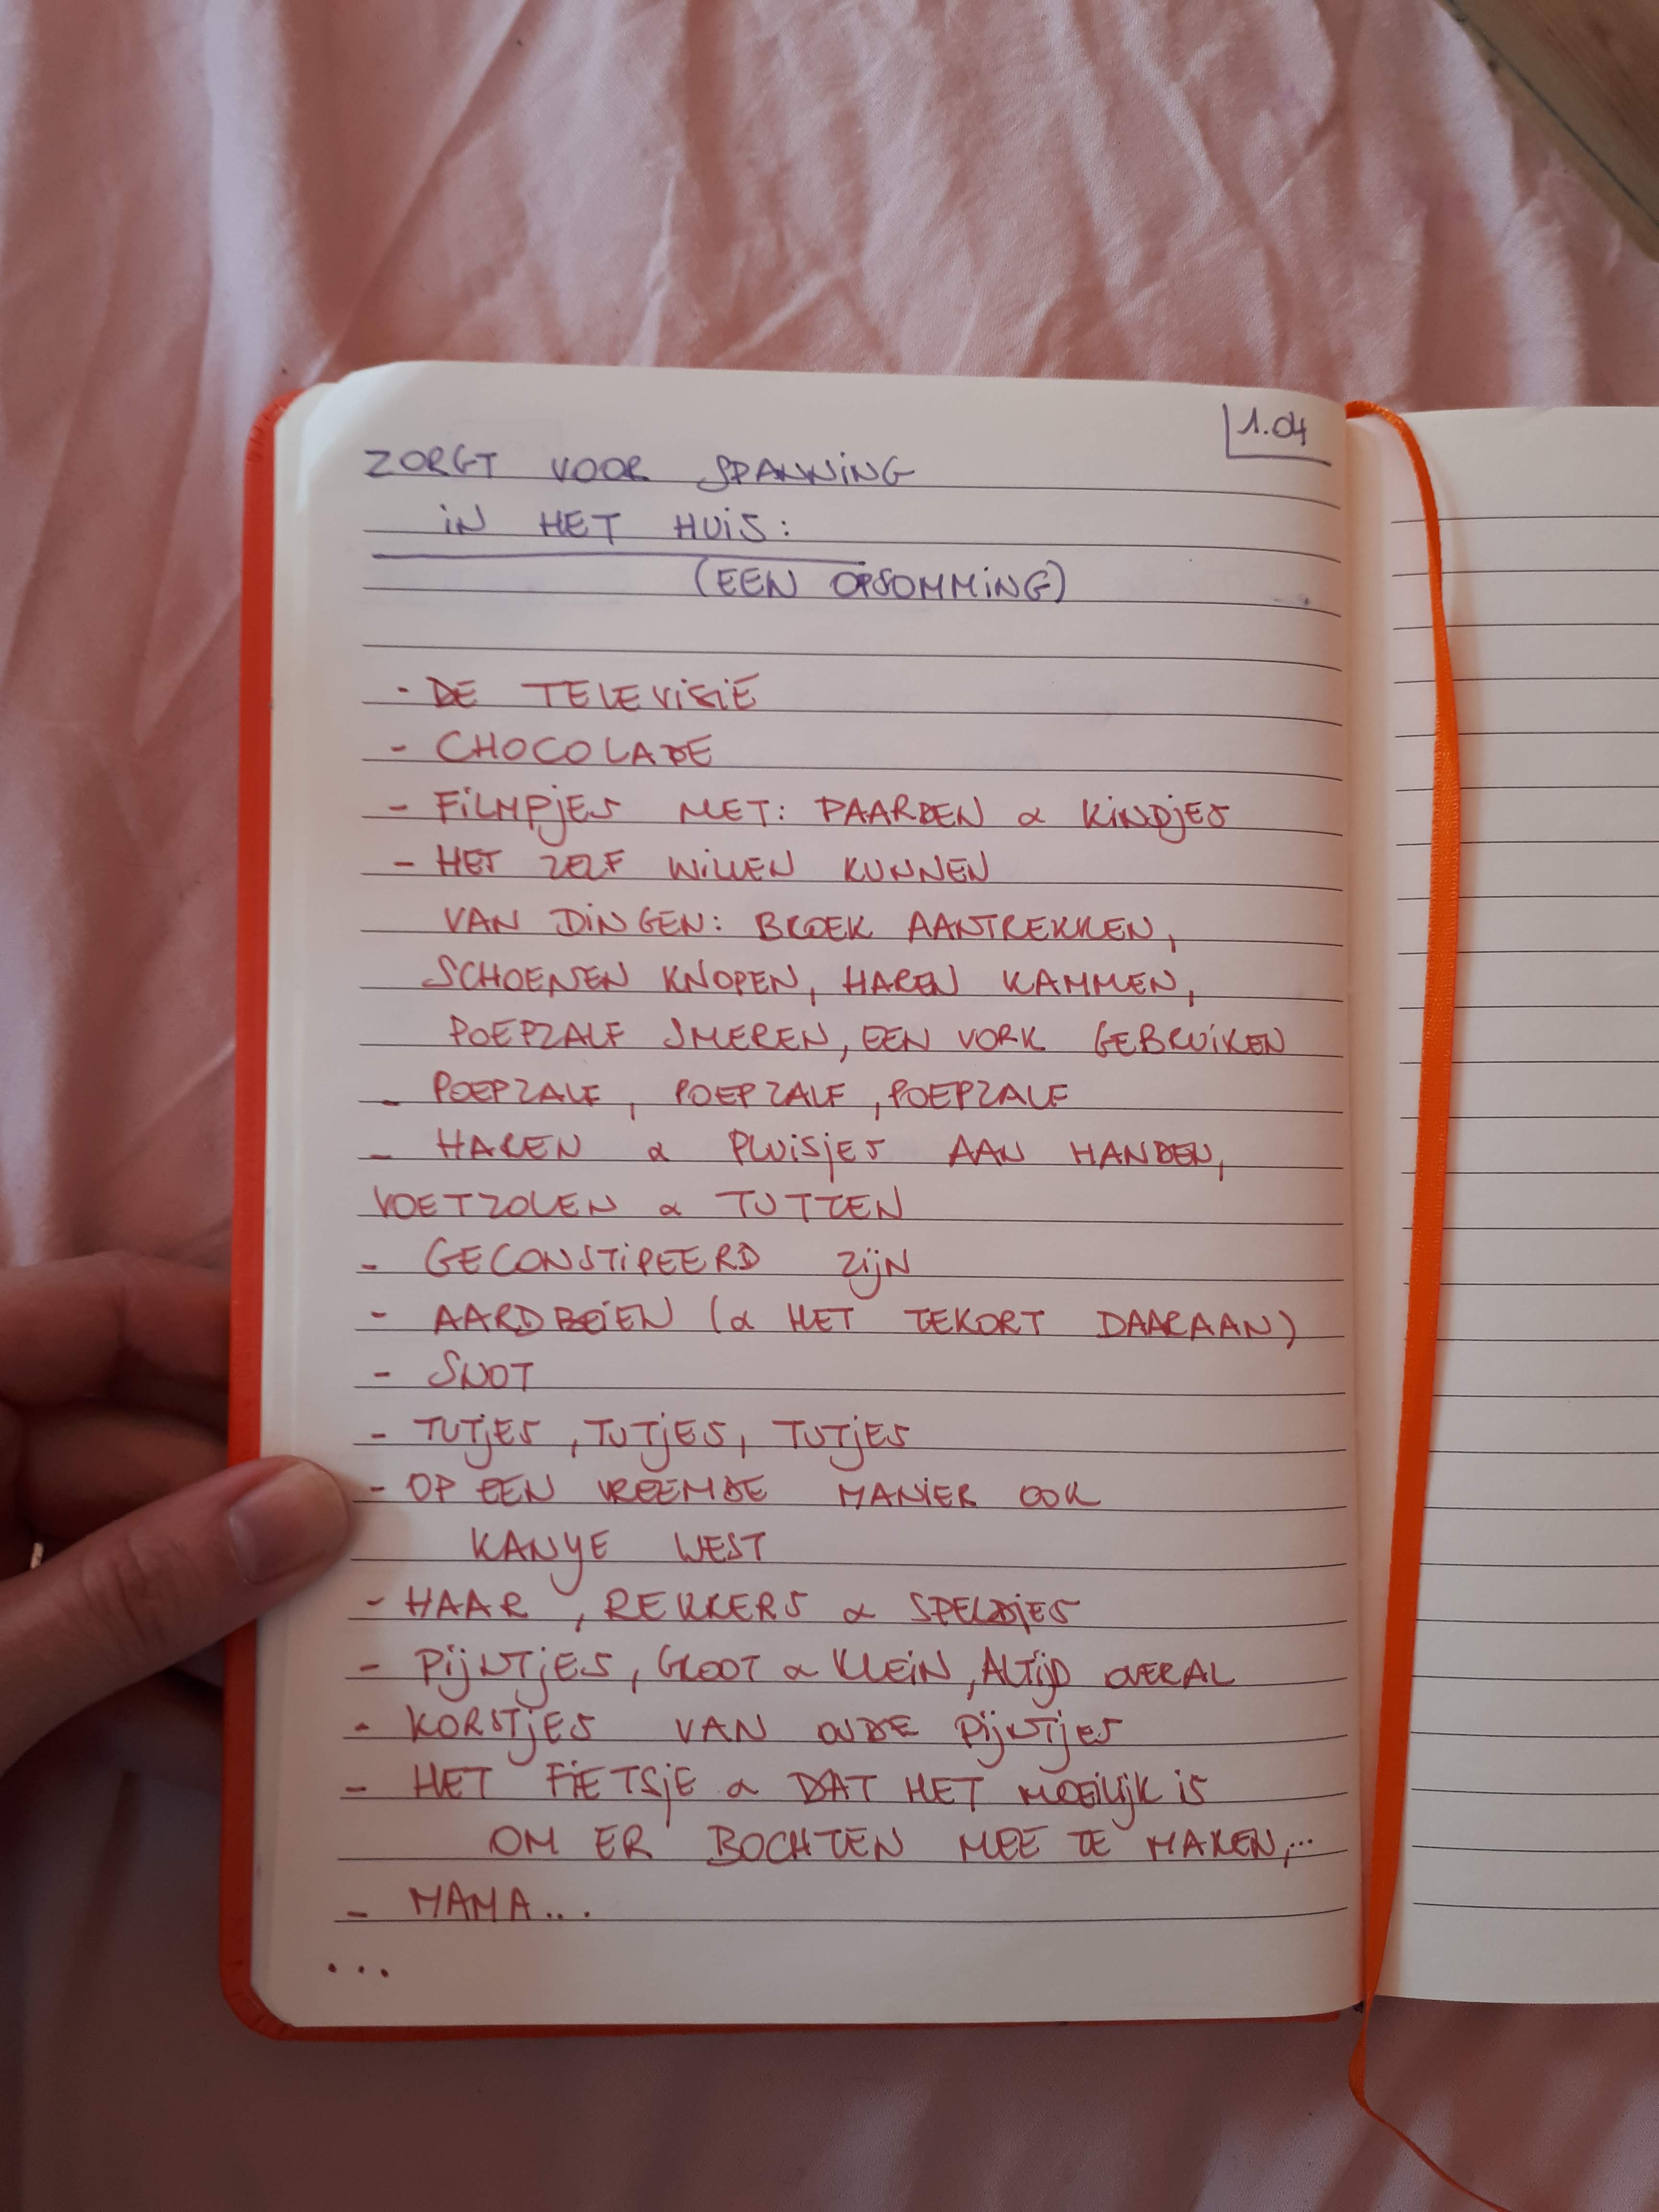 1.04
ZORGT VOOR SPANNING
IN HET HUIS:
(EEN OPSOMMING)
- DE TELEVISIE
- CHOCOLADE
- FILMPJES MET: PAARDEN & KINDJES
- HET ZELF WILLEN KUNNEN
VAN DINGEN: BROEK AANTREKKEN,
SCHOENEN KNOPEN, HAREN KAMMEN,
POEPZALF SMEREN, EEN VORK GEBRUIKEN
- POEPZALF, POEPZALF, POEPZALF
- HAREN & PLUISJES AAN HANDEN,
VOETZOLEN & TUTTEN
- GECONSTIPEERD ZIJN
- AARDBEIEN (& HET TEKORT DAARAAN)
- SNOT
- TUTJES, TUTJES, TUTJES
- OP EEN VREEMDE MANIER OOK
KANYE WEST
- HAAR, REKKERS & SPELDJES
- PIJNTJES, GROOT & KLEIN, ALTIJD OVERAL
- KORSTJES VAN OUDE PIJNTJES
- HET FIETSJE & DAT HET MOEILIJK IS
OM ER BOCHTEN MEE TE MAKEN,...
- MAMA...
...